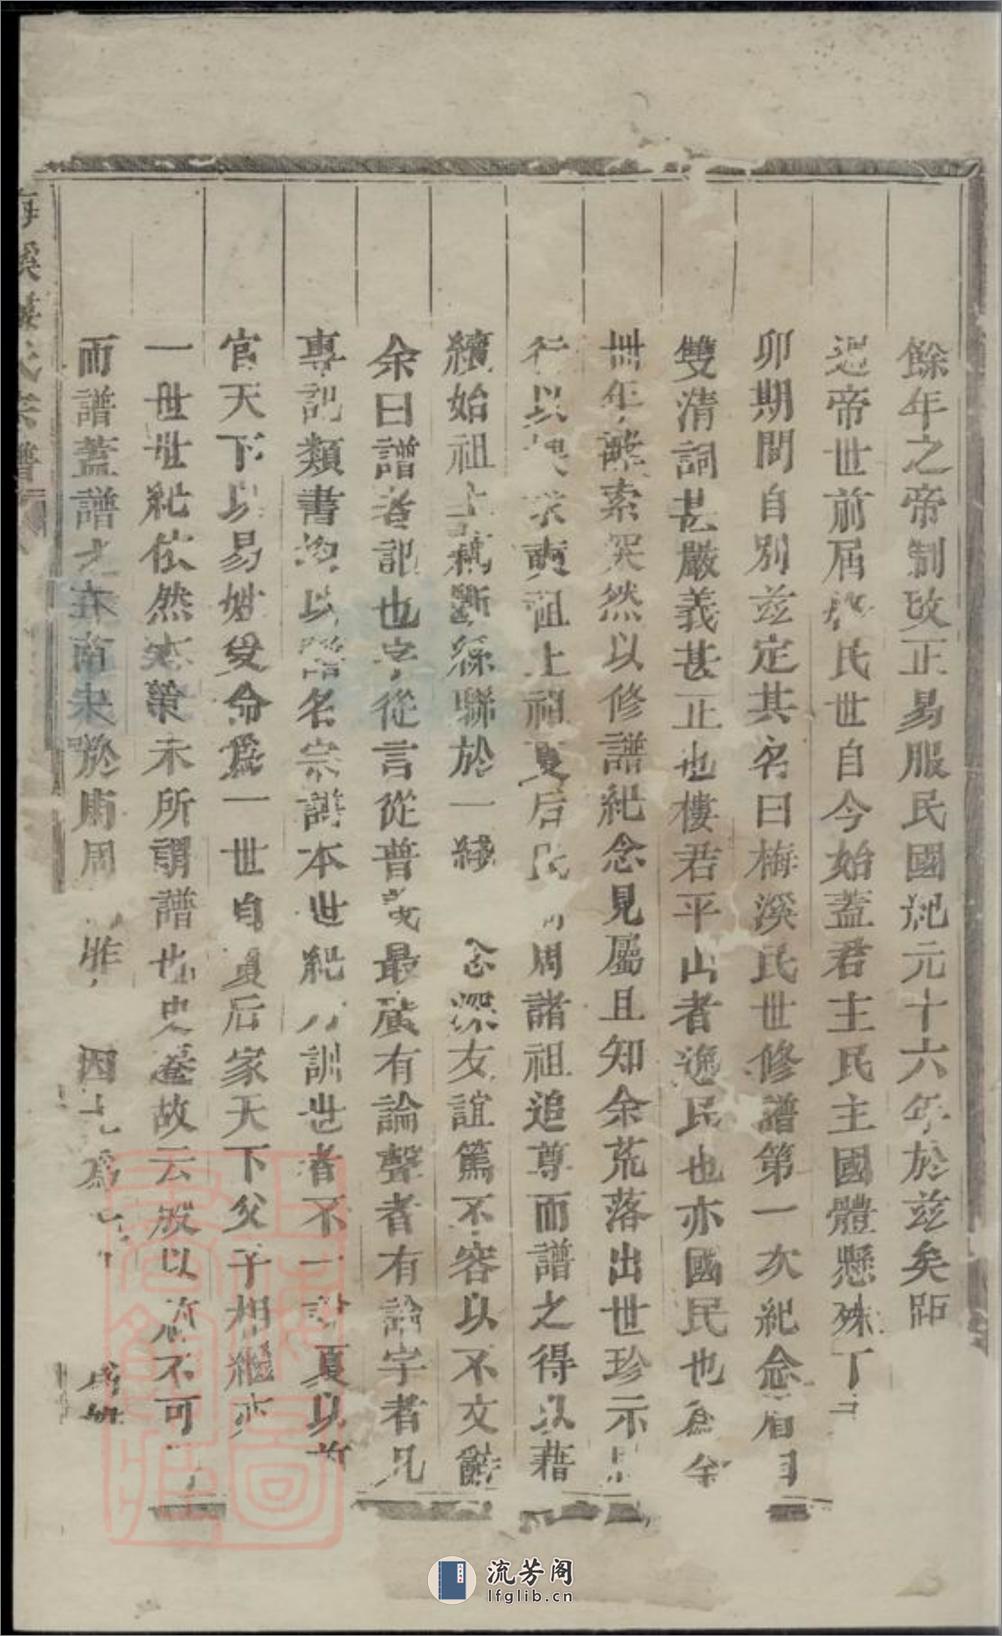 餘年之帝制改正易服民國紀元十六年於茲矣距
帝世前屆民世自今始蓋君主民主國體懸殊丁
卯期間自別茲定其名曰梅溪氏世修譜第一次紀念眉目
雙清詞甚嚴義甚正也樓君平山者逸民也亦國民也爲余
卅年離索突然以修譜紀念見屬且知余荒落出世珍示
行以祖上祖夏后周諸祖追尊而譜之得以藉
續始祖上斷緜聯於一綫念深友誼篤不容以不文辭
余曰譜者記也字從言從普義最廣有論聲者有論字者凡
專記類書均以譜名宗譜本世紀訓世者不一夏以前
官天下以易姓受命爲一世自夏后家天下父子相繼
一世世紀依然未所謂譜也史遷故云殷以不可
而譜蓋譜之未於周因
梅溪樓氏宗譜
流芳阁
lfglib.cn